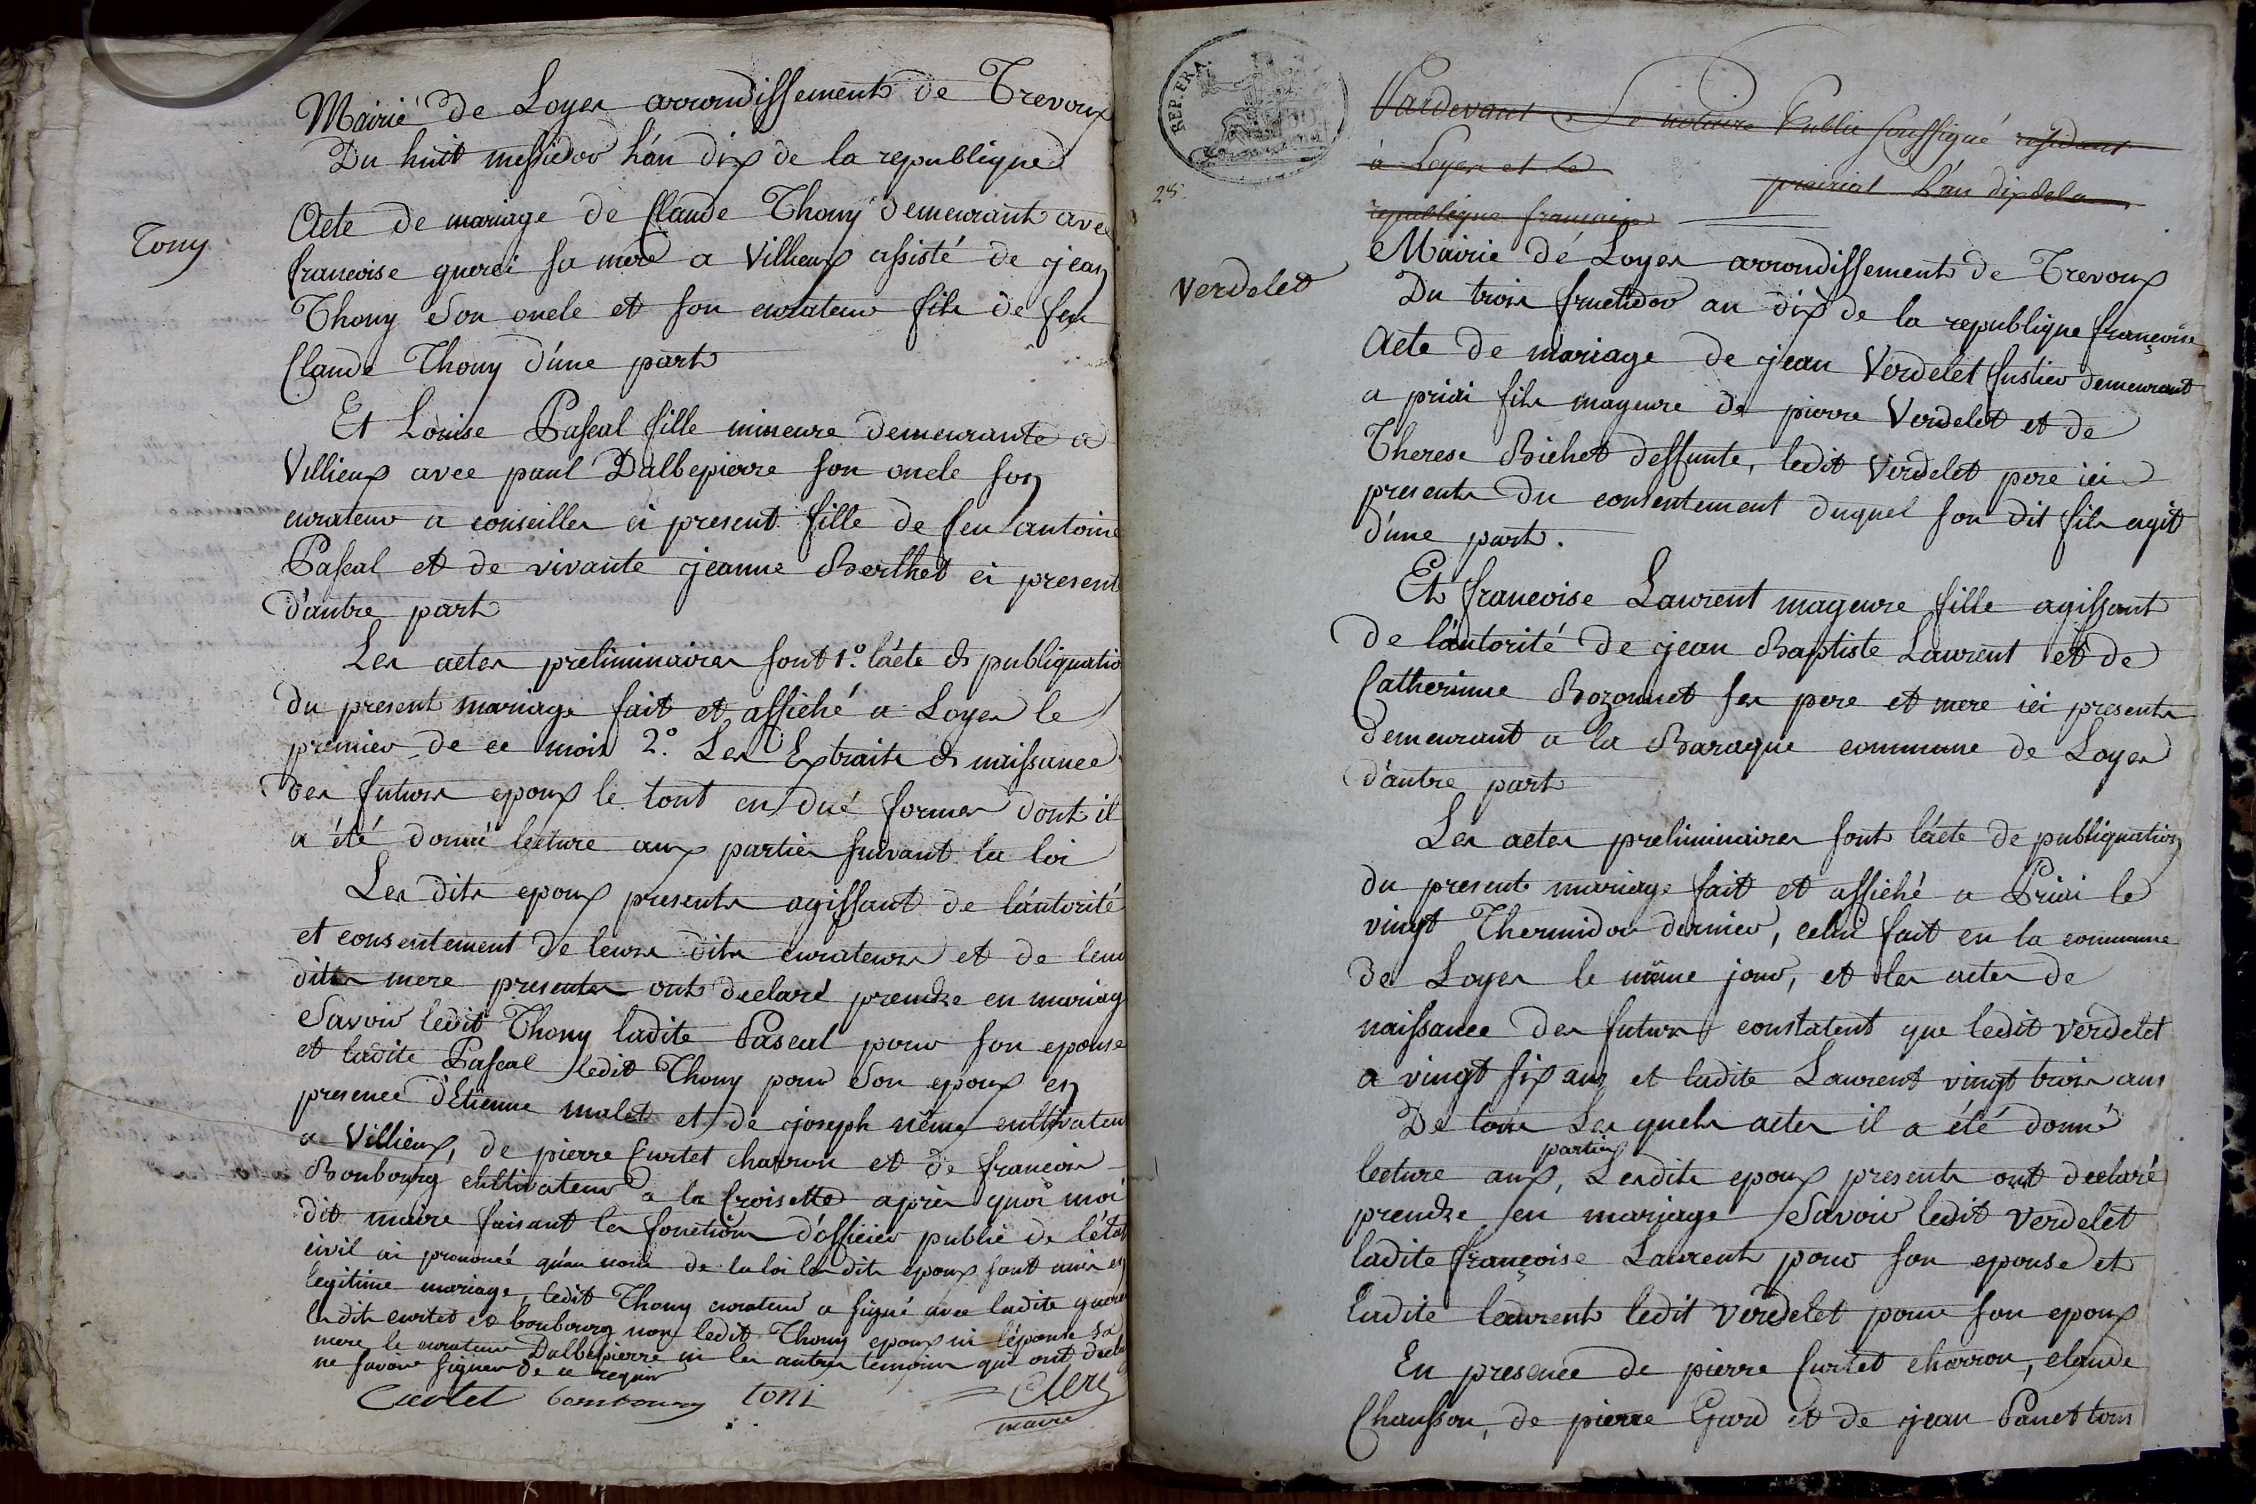 Mairie de Loyes arrondissement de Trevoux
Du huit messidor l'an dix de la republique
Tony
Acte de mariage de Claude Thony demeurant avec
francoise guerci sa mere a Villieux assisté de jean
Thony son oncle et son curateur fils de feu
Claude Thony d'une part
Et Louise Pascal fille mineure demeurante a
Villieux avec paul Dalbepierre son oncle son
curateur a conseiller ci present fille de feu antoine
Pascal et de vivante jeanne Berthet ci presente
d'autre part
Les actes preliminaires sont 1.º l'acte de publiquatio
du present mariage fait et affiché a Loyes le
premier de ce mois 2.º Les Extraits de naissance
des futurs epoux le tout en due formes dont il
a été donné lecture aux parties suivant la loi
Les dits epoux presents agissant de l'autorité
et consentement de leurs dits curateurs et de leur
dites mere presentes ont declaré prendre en mariag
Savoir ledit Thony ladite Pascal pour son epouse
et ladite Pascal ledit Thony pour son epoux en
presence d'Etienne malet et de joseph nême cultivateu
a Villieux, de pierre Curtet charron et de francois
Bonbourg cultivateur a la Croisette après quoi moi
dit maire faisant les fonctions d'officier public de l'état
civil ai prononcé qu'au nom de la loi les dits epoux sont unis en
legitime mariage, ledit Thony curateur a signé avec ladite guerci
les dits curtet et bonbourg non ledit Thony epoux ni l'épouse sa
mere le curateur Dalbepierre ni les autres temoins qui ont declaré
ne savoir signer de ce requis
Curtet bonbourg toni Clerc
maire
REP. FRA.
25.
Pardevant Le notaire Public soussigné residant
à Loyes et le prairial l'an dix de la
republique française
Mairie de Loyes arrondissement de Trevoux
Verdelet
Du trois fructidor an dix de la republique françoise
Acte de mariage de jean Verdelet fustier demeurant
a priai fils mageure de pierre Verdelet et de
Therese Bichet deffunte, ledit Verdelet pere ici
presents du consentement duquel son dit fils agit
d'une part.
Et francoise Laurent mageure fille agissant
de l'autorité de jean Baptiste Laurent et de
Catherinne Bozonnet ses pere et mere ici presents
demeurant a la Baraque commune de Loyes
d'autre part
Les actes preliminaires sont l'acte de publiquation
du presente mariage fait et affiché a Priai le
vingt Thermidor dernier, celui fait en la commune
de Loyes le même jour, et les actes de
naissance des futurs constatent que ledit verdelet
a vingt six ans et ladite Laurent vingt trois ans
De tous Les quels actes il a été donné
parties
lecture aux, Lesdits epoux presents ont declaré
prendre en mariage Savoir ledit Verdelet
ladite françoise Laurent pour son epouse et
ladite laurent ledit Verdelet pour son epoux
En presence de pierre Curtet charron, claude
Chausson, de pierre Gard et de jean Panet tous